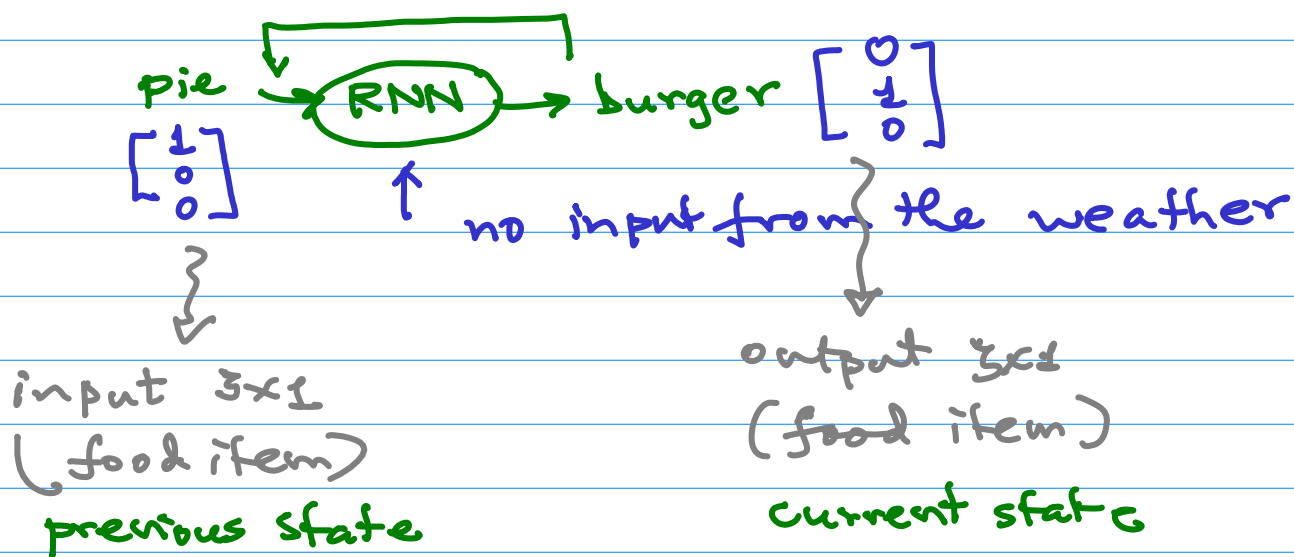 pie RNN burger
[1 0 0]
[0 1 0]
no input from the weather
input 3x1
(food item)
previous state
output 3x1
(food item)
current state